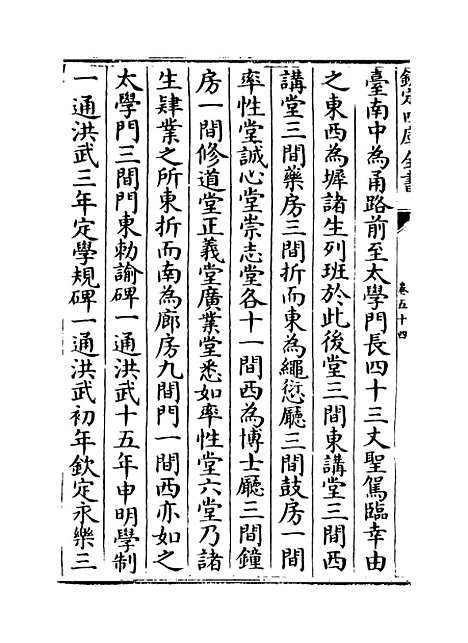 欽定四庫全書
卷五十四
臺南中為甬路前至太學門長四十三丈聖駕臨幸由
之東西為墀諸生列班於此後堂三間東講堂三間西
講堂三間藥房三間折而東為繩愆廳三間鼓房一間
率性堂誠心堂崇志堂各十一間西為博士廳三間鐘
房一間修道堂正義堂廣業堂悉如率性堂六堂乃諸
生肄業之所東折而南為廊房九間門一間西亦如之
太學門三間門東勅諭碑一通洪武十五年申明學制
一通洪武三年定學規碑一通洪武初年欽定永樂三